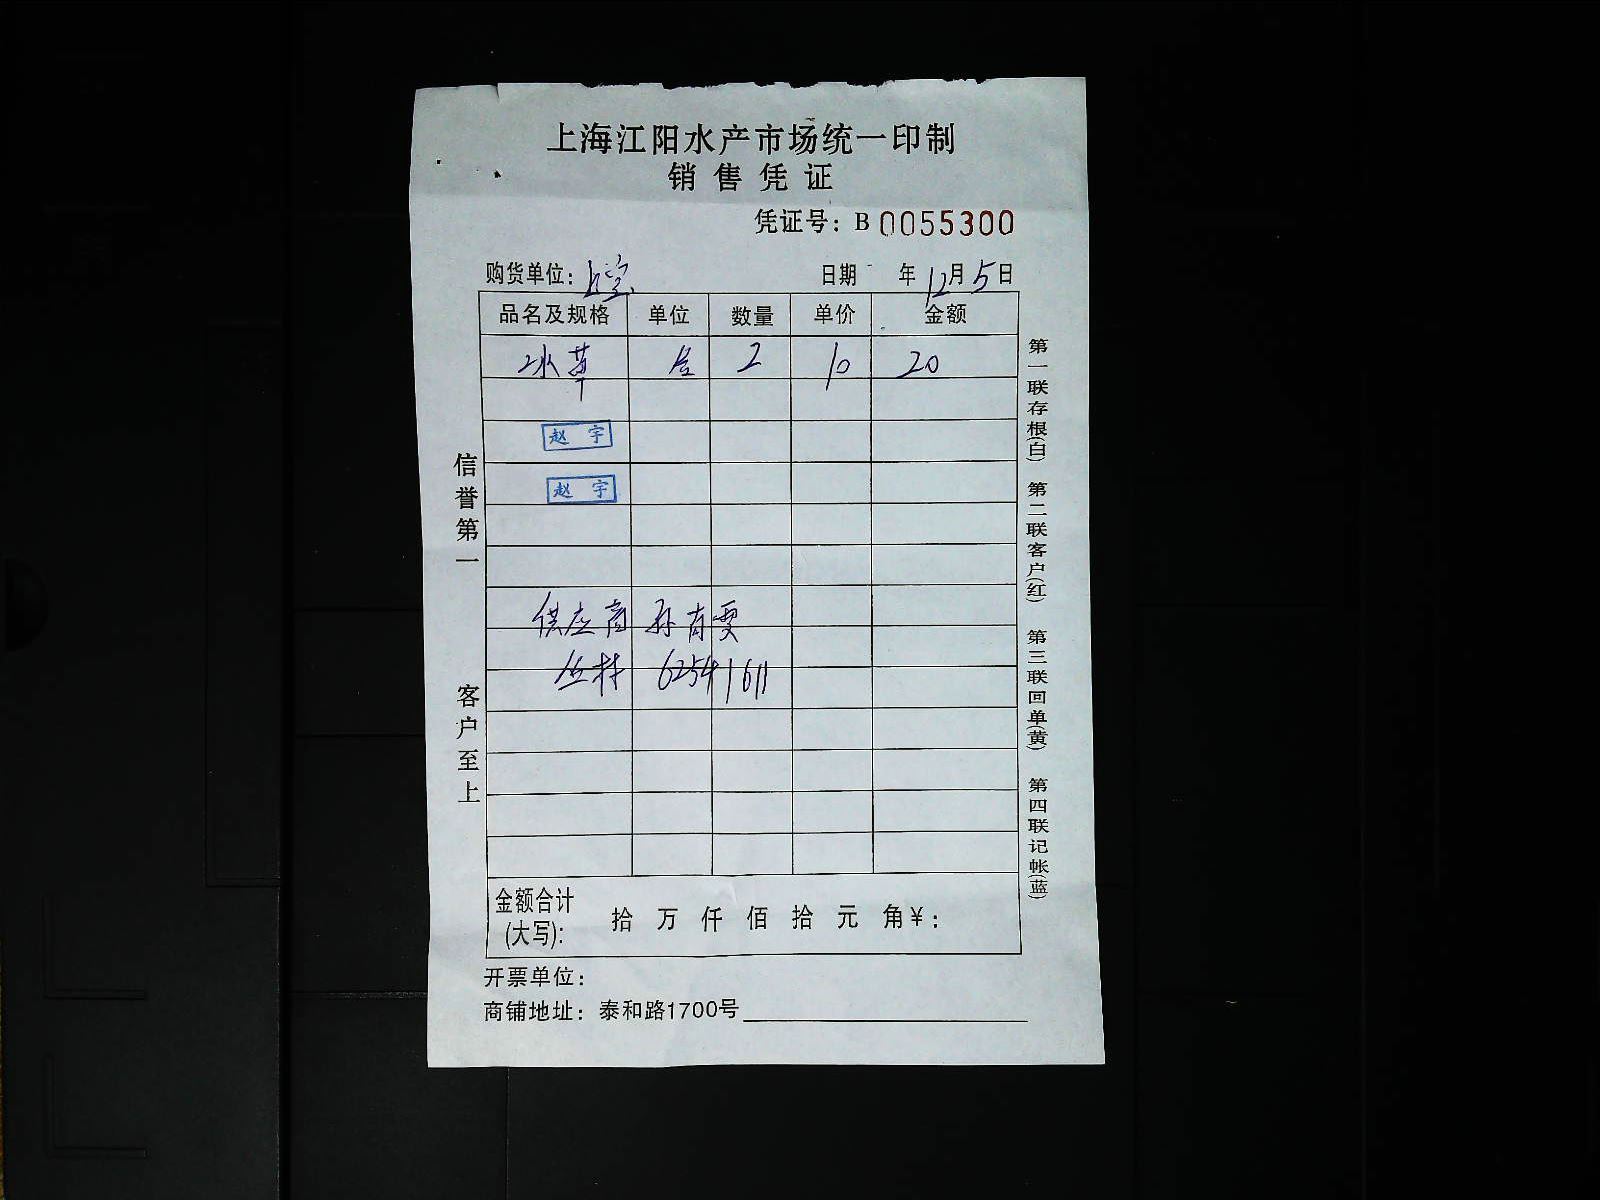 上海江阳水产市场统一印制
销售凭证
凭证号：B 0055300
购货单位：上宝 日期 年12月5日
品名及规格 单位 数量 单价 金额
冰草 盒 2 10 20
赵宇
赵宇
供应商 孙育雯
丛林 62541611
金额合计(大写)： 拾 万 仟 佰 拾 元 角¥：
开票单位：
商铺地址：泰和路1700号
信誉第一 客户至上
第一联存根(白) 第二联客户(红) 第三联回单(黄) 第四联记帐(蓝)